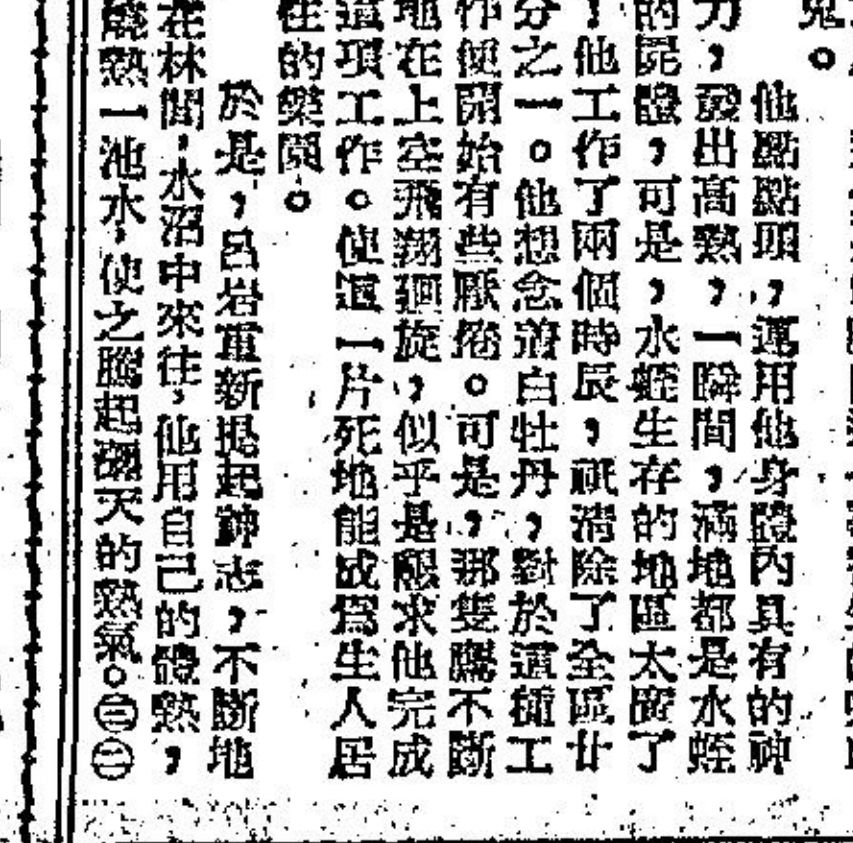 鬼。
他點點頭，運用他身體內具有的神
力，發出高熱，一瞬間，滿地都是水蛭
的屍體，可是，水蛭生存的地區太廣了
！他工作了兩個時辰，祇清除了全區廿
分之一。他想念着白牡丹，對於這種工
作便開始有些厭倦。可是，那隻鷹不斷
地在上空飛翔廻旋，似乎是懇求他完成
這項工作。使這一片死地能成爲生人居
住的樂園。
於是，呂岩重新提起神志，不斷地
在林間，水沼中來往，他用自己的體熱，
燒熱一池水，使之騰起翻天的熱氣。㊂㊁